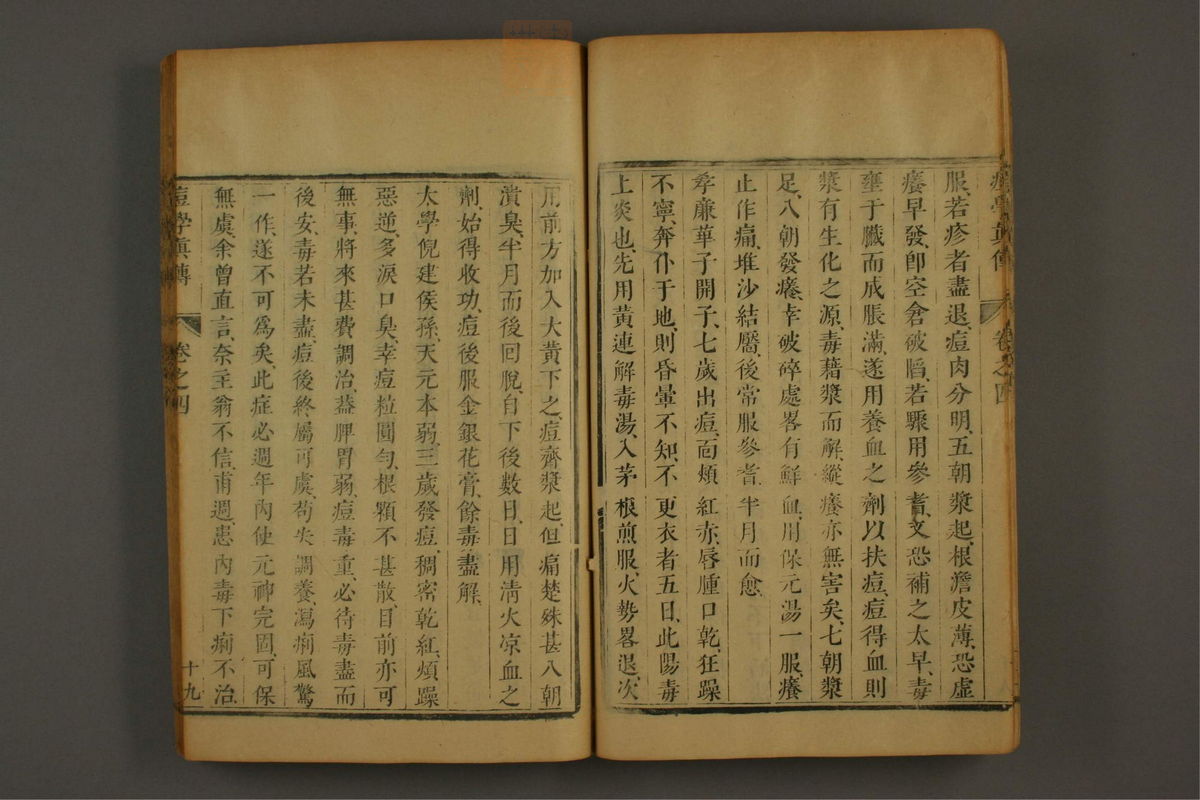 痘學真傳 卷之四
服、若疹者盡退、痘肉分明、五朝漿起、根澹皮薄、恐虛
癢早發、卽空倉破䧟、若驟用參耆、又恐補之太早、毒
壅于臟而成脹滿、遂用養血之劑以扶痘、痘得血則
漿有生化之源、毒藉漿而解、縱癢亦無害矣、七朝漿
足、八朝發癢、幸破碎處畧有鮮血、用保元湯一服、癢
止作痛、堆沙結靨、後常服參耆、半月而愈
孝廉華子開子、七歲出痘、面頰紅赤、唇腫口乾、狂躁
不寧、奔仆于地、則昏暈不知、不更衣者五日、此陽毒
上炎也、先用黃連解毒湯、入茅根煎服、火勢畧退、次
用前方加入大黃下之、痘齊漿起、但痛楚殊甚、八朝
潰臭、半月而後回脫、自下後數日、日用清火凉血之
劑、始得收功、痘後服金銀花膏、餘毒盡解、
太學倪建侯孫、天元本弱、三歲發痘、稠密乾紅、煩躁
惡逆、多淚口臭、幸痘粒圓勻、根顆不甚散、目前亦可
無事、將來甚費調治、葢脾胃弱、痘毒重、必待毒盡而
後安、毒若未盡、痘後終屬可虞、苟失調養、瀉痢風驚
一作、遂不可爲矣、此症必週年內使元神完固、可保
無虞、余曾直言、奈主翁不信、甫週、患內毒下痢不治
痘學真傳 卷之四 十九